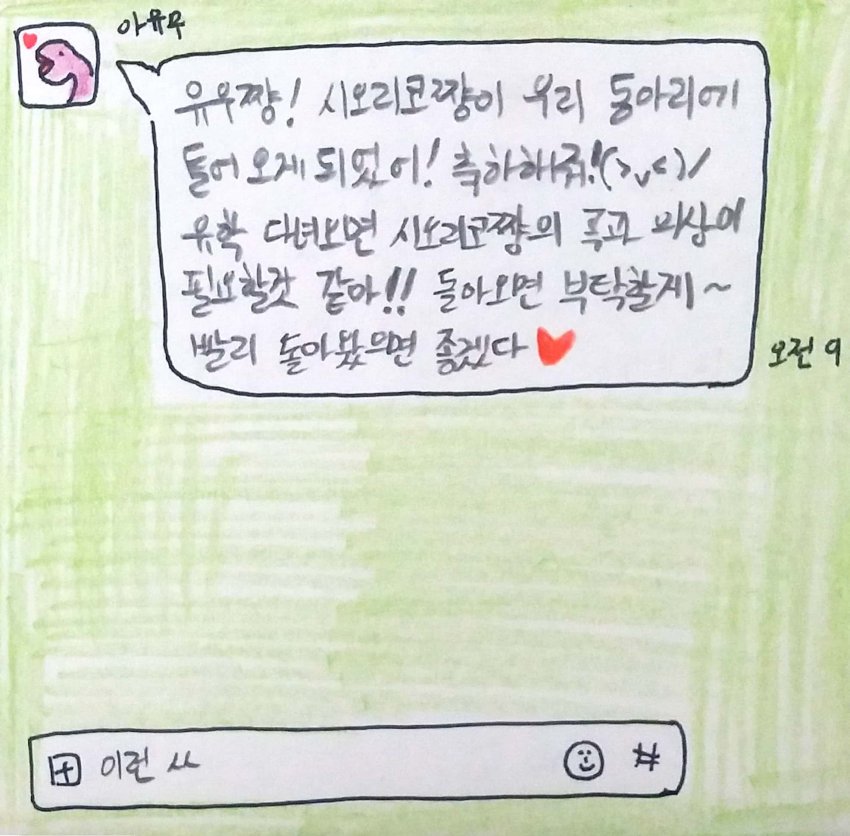 아유무
유우쨩! 시오리코쨩이 우리 동아리에
들어 오게 되었어! 축하해줘!(>v<)/
유학 다녀오면 시오리코쨩의 곡과 의상이
필요할것 같아!! 돌아오면 부탁할게~
빨리 돌아왔으면 좋겠다
오전 9
이런 ㅆ
#